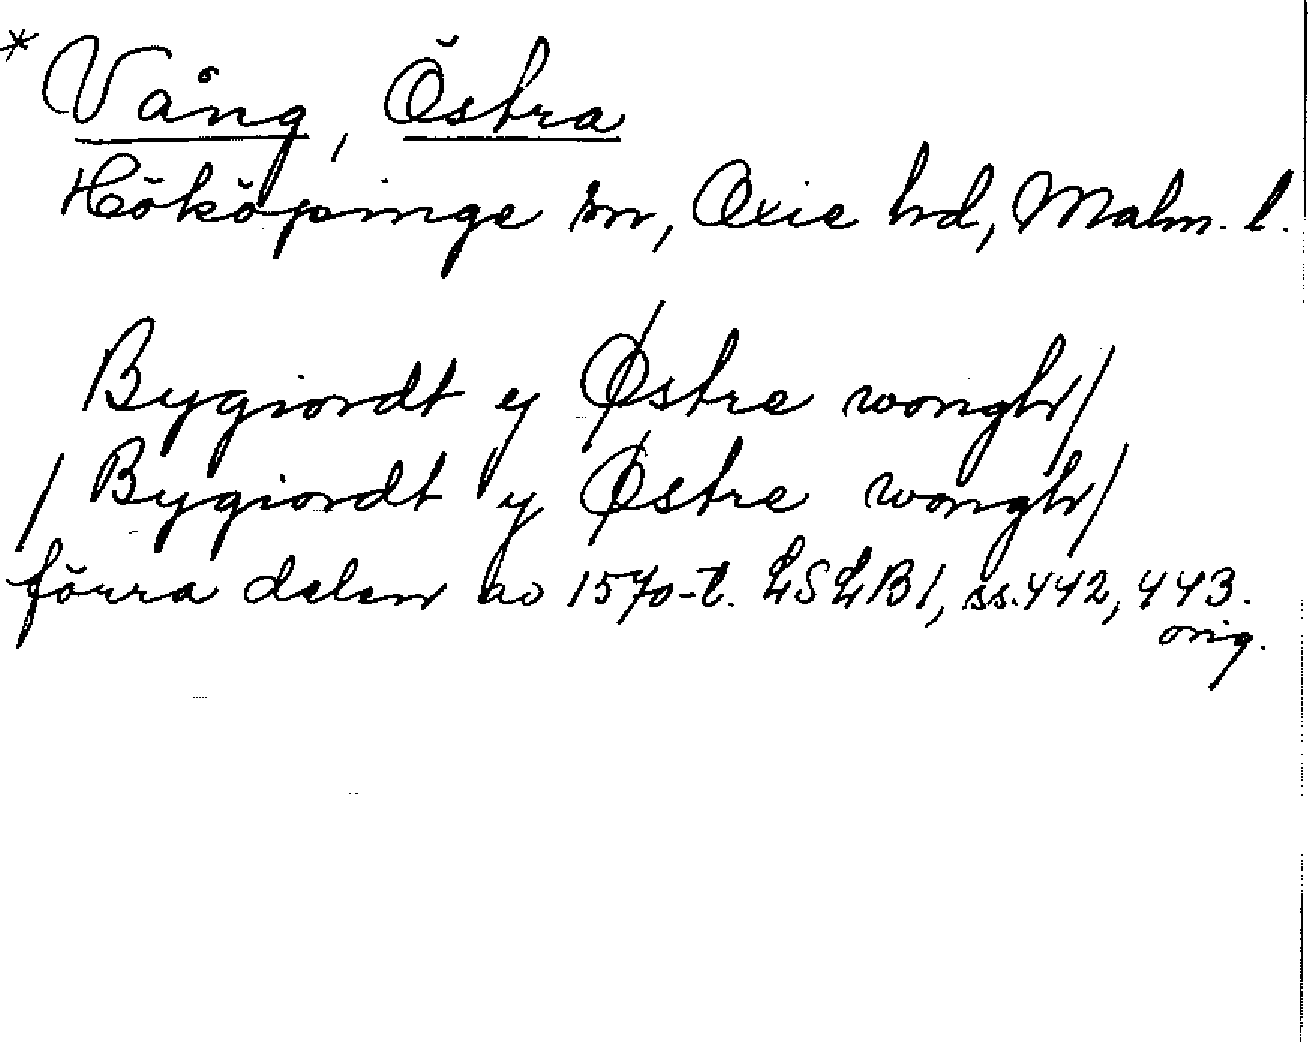 * Vång, Östra
Hököpinge sn, Oxie hd, Malm. l.
Bygiordt y Østre wongh/
/Bygiordt y Østre wongh/
förra delen av 1570-t. LSLB1, ss.442, 443.
orig.